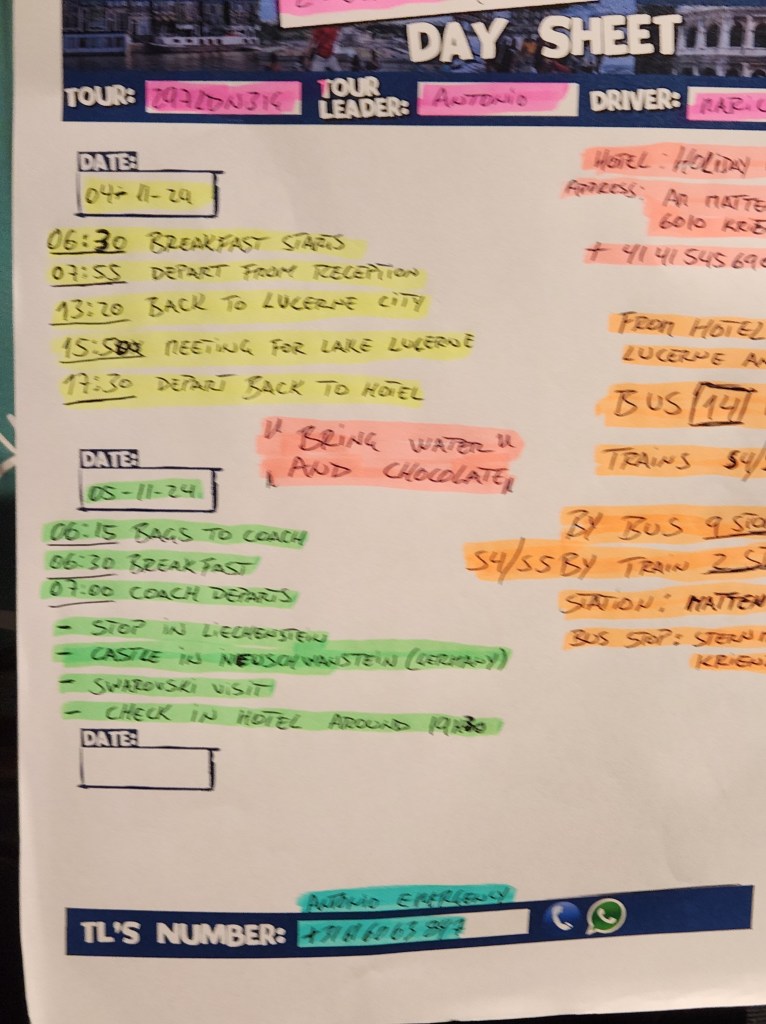 DAY SHEET
TOUR: TOUR LEADER: ANTONIO DRIVER:
DATE:
04-11-24
06:30 BREAKFAST STARTS
07:55 DEPART FROM RECEPTION
13:20 BACK TO LUCERNE CITY
MEETING FOR LAKE LUCERNE
17:30 DEPART BACK TO HOTEL
"BRING WATER"
"AND CHOCOLATE"
DATE:
05-11-24
06:15 BAGS TO COACH
06:30 BREAKFAST
07:00 COACH DEPARTS
- STOP IN LIECHENSTEIN
- CASTLE IN NEUSCHWANSTEIN (GERMANY)
- SWAROVSKI VISIT
- CHECK IN HOTEL AROUND 19H30
DATE:
HOTEL: HOLIDAY
ADDRESS: AM
6010
+ 41 41 545 690
FROM HOTEL
LUCERNE
BUS 14
TRAINS S4/
BY BUS 9
S4/S5 BY TRAIN 2
STATION: MATTEN
BUS STOP:
ANTONIO EMERGENCY
TL'S NUMBER: